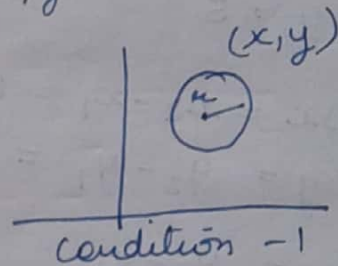 (x,y)
r
condition - 1